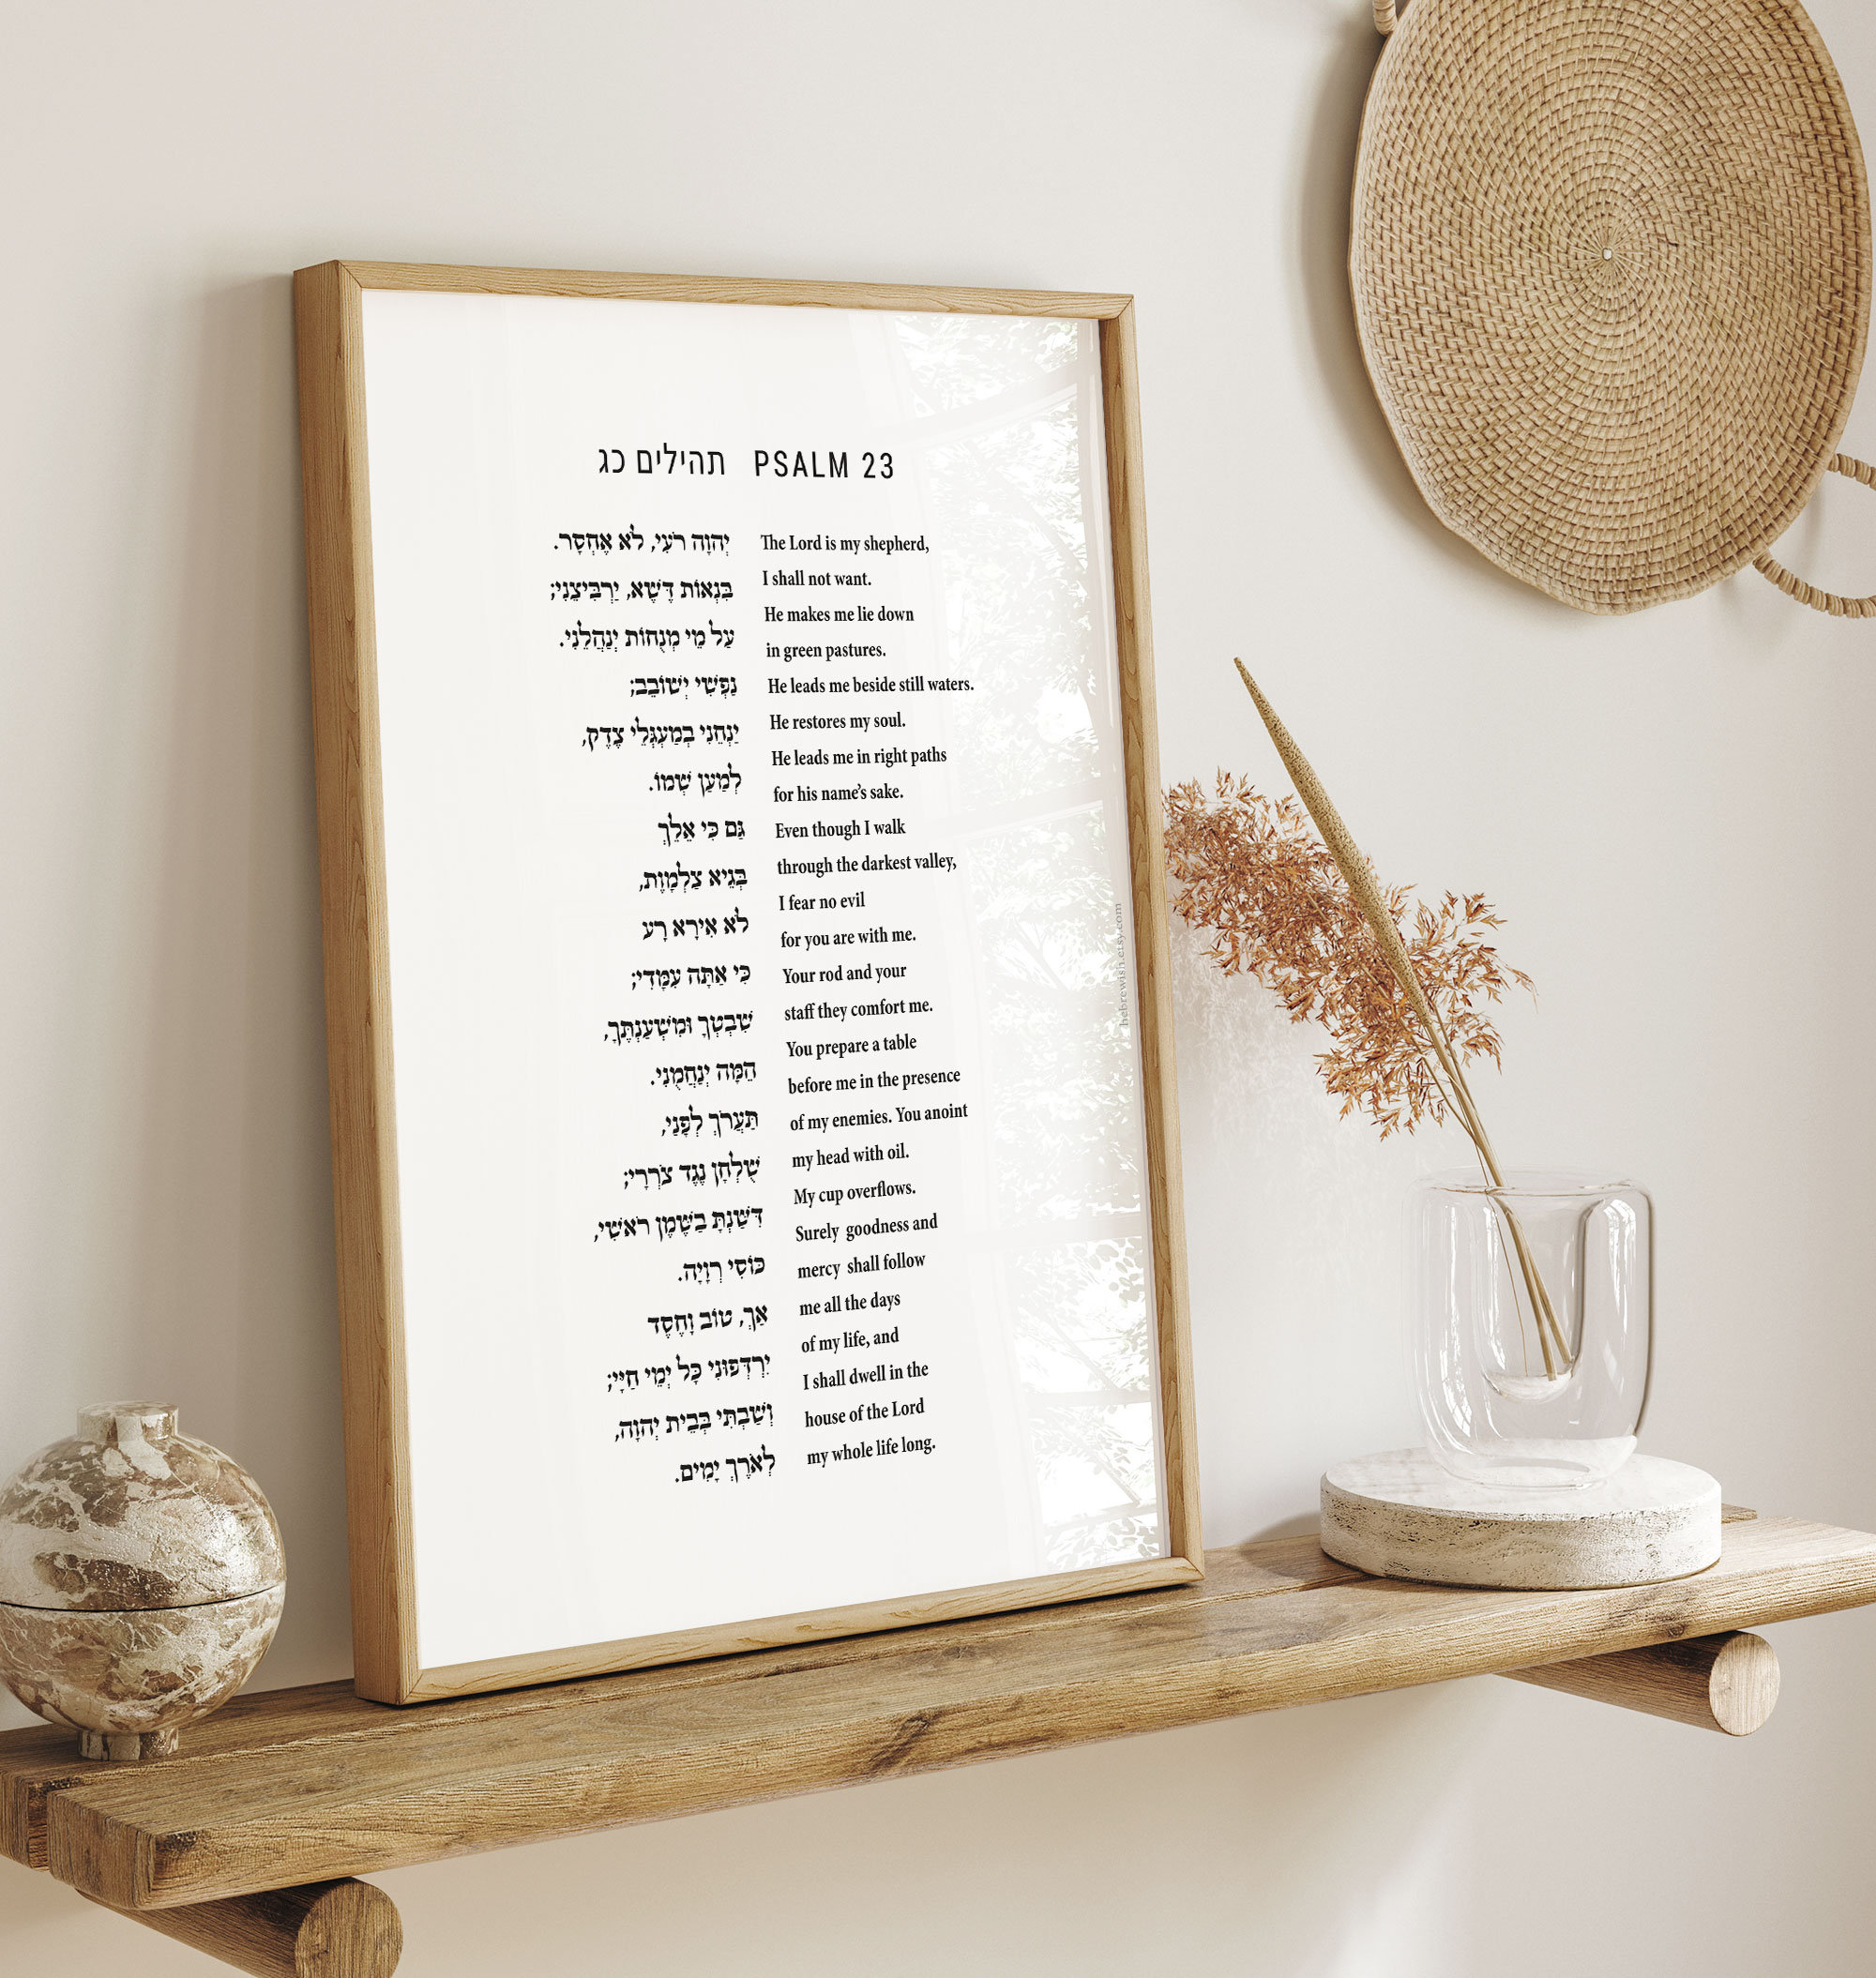 תהילים כג PSALM 23
יְהוָה רֹעִי, לֹא אֶחְסָר.
בִּנְאוֹת דֶּשֶׁא, יַרְבִּיצֵנִי;
עַל מֵי מְנֻחוֹת יְנַהֲלֵנִי.
נַפְשִׁי יְשׁוֹבֵב;
יַנְחֵנִי בְמַעְגְּלֵי צֶדֶק,
לְמַעַן שְׁמוֹ.
גַּם כִּי אֵלֵךְ
בְּגֵיא צַלְמָוֶת,
לֹא אִירָא רָע
כִּי אַתָּה עִמָּדִי;
שִׁבְטְךָ וּמִשְׁעַנְתֶּךָ,
הֵמָּה יְנַחֲמֻנִי.
תַּעֲרֹךְ לְפָנַי,
שֻׁלְחָן נֶגֶד צֹרְרָי;
דִּשַּׁנְתָּ בַשֶּׁמֶן רֹאשִׁי,
כּוֹסִי רְוָיָה.
אַךְ, טוֹב וָחֶסֶד
יִרְדְּפוּנִי כָּל יְמֵי חַיָּי;
וְשַׁבְתִּי בְּבֵית יְהוָה,
לְאֹרֶךְ יָמִים.
The Lord is my shepherd,
I shall not want.
He makes me lie down
in green pastures.
He leads me beside still waters.
He restores my soul.
He leads me in right paths
for his name’s sake.
Even though I walk
through the darkest valley,
I fear no evil
for you are with me.
Your rod and your
staff they comfort me.
You prepare a table
before me in the presence
of my enemies. You anoint
my head with oil.
My cup overflows.
Surely goodness and
mercy shall follow
me all the days
of my life, and
I shall dwell in the
house of the Lord
my whole life long.
hebrewish.etsy.com